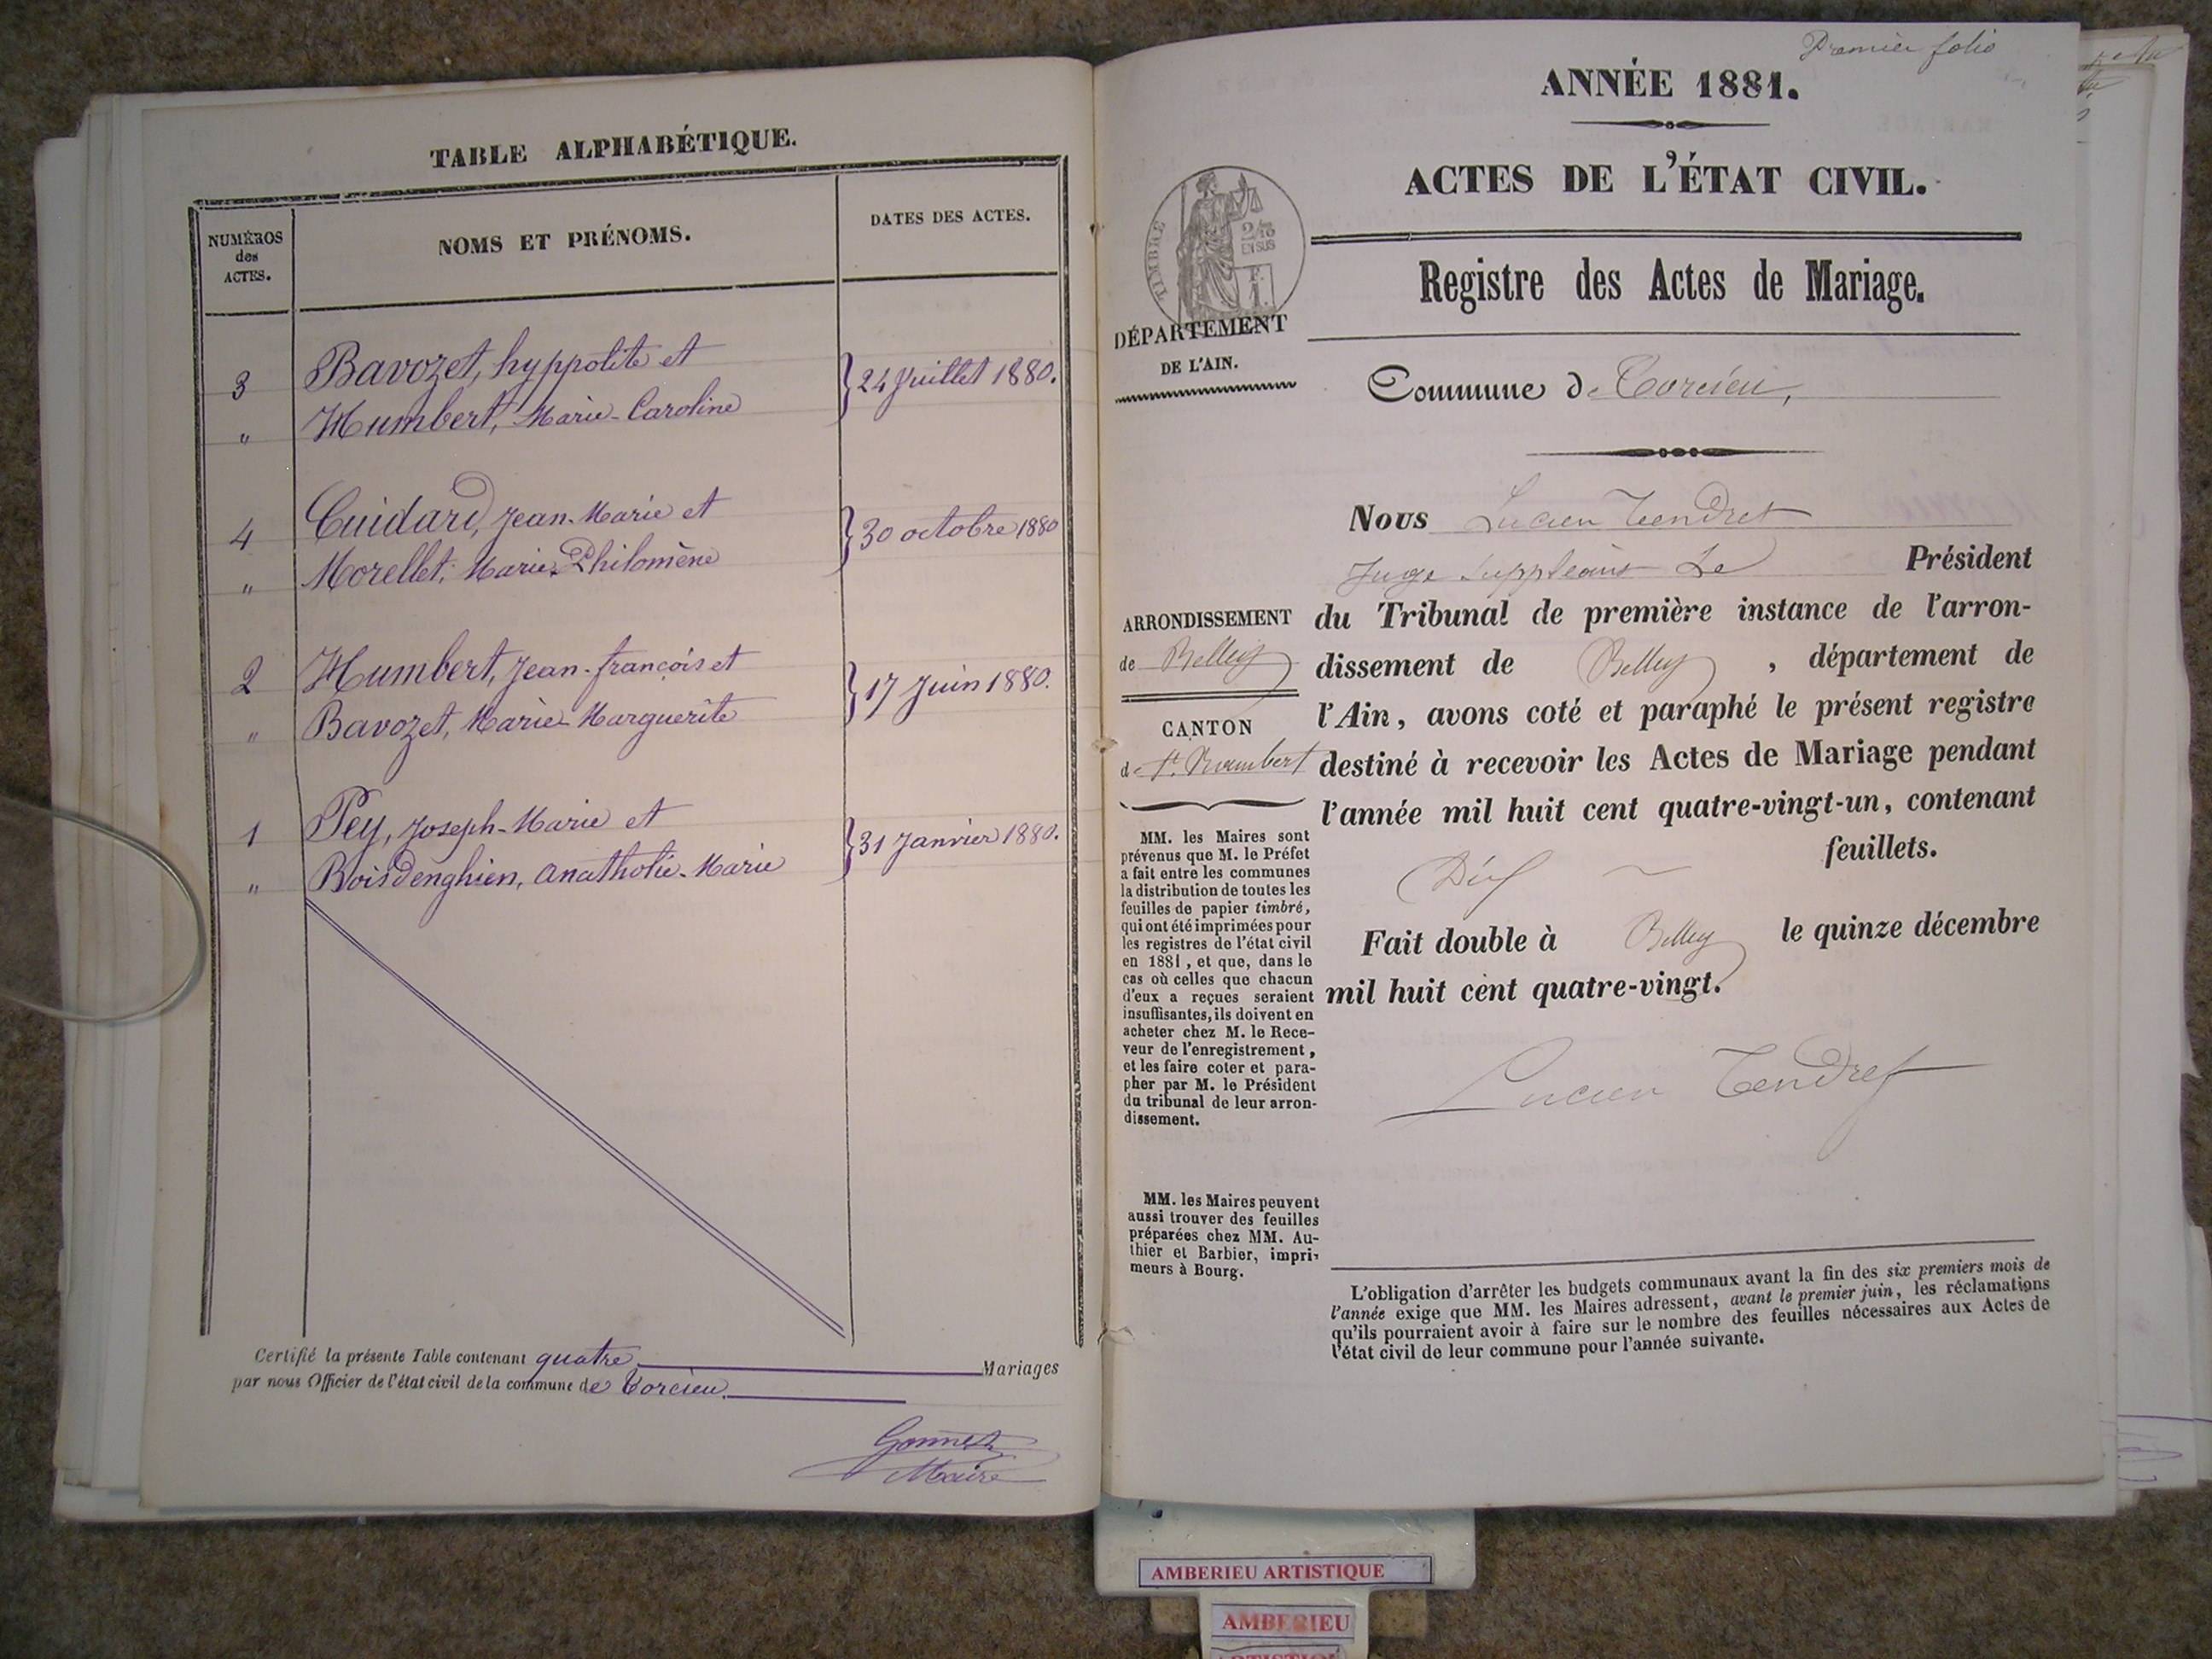 TABLE ALPHABÉTIQUE.
NUMÉROS
des
ACTES.
NOMS ET PRÉNOMS.
DATES DES ACTES.
3 Bavozet, hyppolite et
" Humbert, Marie-Caroline
}24 Juillet 1880.
4 Cuidard, Jean-Marie et
" Morellet, Marie-Philomène
}30 octobre 1880
2 Humbert, Jean-françois et
" Bavozet, Marie-Marguerite
}17 Juin 1880.
1 Pey, Joseph-Marie et
" Boisdenghien, Anatholie-Marie
}31 Janvier 1880.
Certifié la présente Table contenant quatre Mariages
par nous Officier de l'état civil de la commune de Torcieu
Gonnet
Maire
Premier folio
ANNÉE 1881.
ACTES DE L'ÉTAT CIVIL.
TIMBRE
2/10
EN SUS
Registre des Actes de Mariage.
DÉPARTEMENT
DE L'AIN.
Commune de Torcieu,
Nous Lucien Tendret
Juge suppléant Le Président
du Tribunal de première instance de l'arron-
dissement de Belley, département de
l'Ain, avons coté et paraphé le présent registre
destiné à recevoir les Actes de Mariage pendant
l'année mil huit cent quatre-vingt-un, contenant
Dix feuillets.
Fait double à Belley le quinze décembre
mil huit cent quatre-vingt.
Lucien Tendret
ARRONDISSEMENT
de Belley
CANTON
de St. Rambert
MM. les Maires sont
prévenus que M. le Préfet
a fait entre les communes
la distribution de toutes les
feuilles de papier timbré,
qui ont été imprimées pour
les registres de l'état civil
en 1881, et que, dans le
cas où celles que chacun
d'eux a reçues seraient
insuffisantes, ils doivent en
acheter chez M. le Rece-
veur de l'enregistrement,
et les faire coter et para-
pher par M. le Président
du tribunal de leur arron-
dissement.
MM. les Maires peuvent
aussi trouver des feuilles
préparées chez MM. Au-
thier et Barbier, impri-
meurs à Bourg.
L'obligation d'arrêter les budgets communaux avant la fin des six premiers mois de
l'année exige que MM. les Maires adressent, avant le premier juin, les réclamations
qu'ils pourraient avoir à faire sur le nombre des feuilles nécessaires aux Actes de
l'état civil de leur commune pour l'année suivante.
AMBERIEU ARTISTIQUE
AMBERIEU
ARTISTIQUE